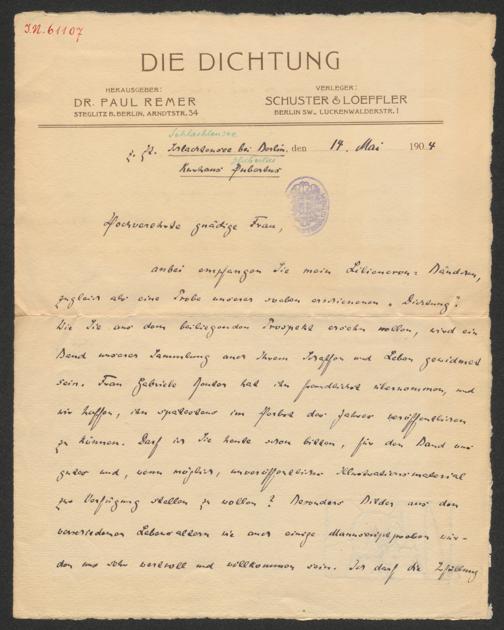 J.N. 61107
DIE DICHTUNG
HERAUSGEBER:
DR. PAUL REMER
STEGLITZ B. BERLIN, ARNDTSTR. 34
VERLEGER:
SCHUSTER & LOEFFLER
BERLIN SW., LUCKENWALDERSTR. 1
Schlachtensee
z. Zt. Schlachtensee bei Berlin, den 14. Mai 1904
Hubertus
Kurhaus Hubertus
Hochverehrte gnädige Frau,
anbei empfangen Sie mein Liliencron-Bändchen,
zugleich als eine Probe unserer soeben erschienenen „Dichtung".
Wie Sie aus dem beiliegenden Prospekt ersehen wollen, wird ein
Band unserer Sammlung auch Ihrem Schaffen und Leben gewidmet
sein. Frau Gabriele Reuter hat ihn freundlichst übernommen, und
wir hoffen, ihn spätestens im Herbst des Jahres veröffentlichen
zu können. Darf ich Sie heute schon bitten, für den Band uns
gutes und, wenn möglich, unveröffentlichtes Illustrationsmaterial
zur Verfügung stellen zu wollen? Besonders Bilder aus den
verschiedenen Lebensaltern wie auch einige Manuscriptproben wür-
den uns sehr wertvoll und willkommen sein. Ich darf die Erfüllung